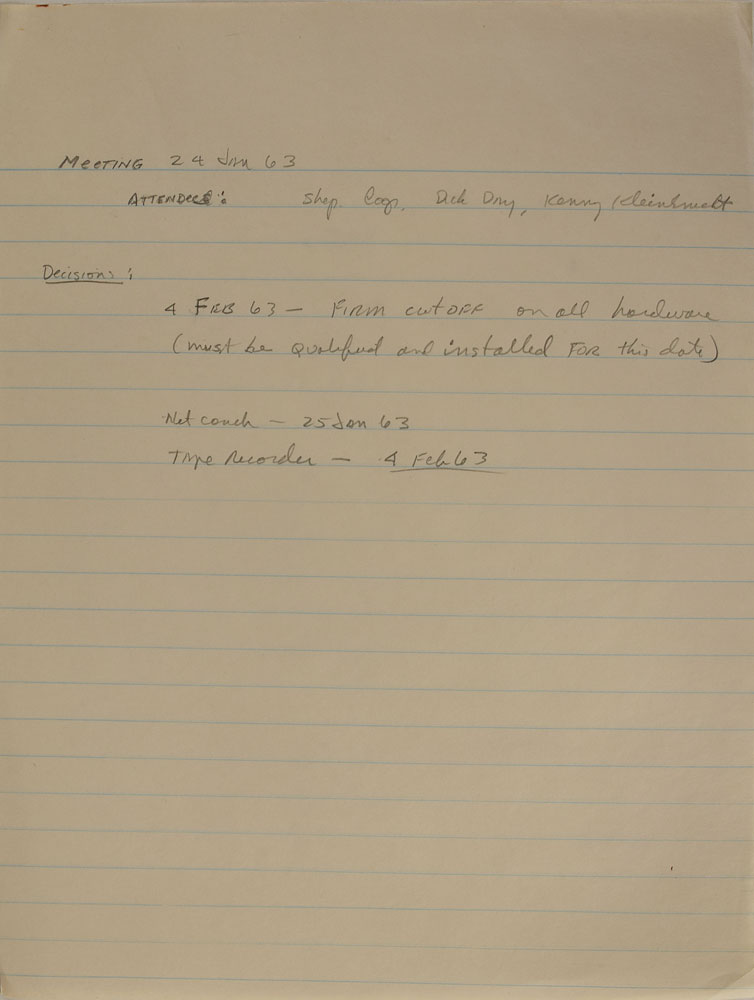 MEETING 24 Jan 63
ATTENDEES: Shep. Coop, Dick Day, Kenny Kleinknecht
Decisions:
4 FEB 63 — FIRM cutoff on all hardware
(must be qualified and installed FOR this date)
Net couch — 25 Jan 63
Tape Recorder — 4 Feb 63